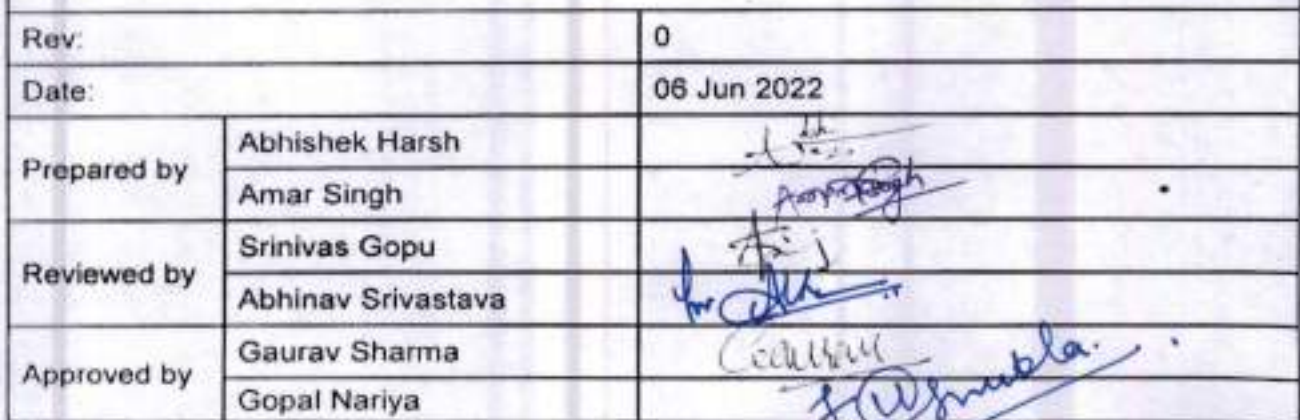 Rev: 0
Date: 06 Jun 2022
Prepared by
Abhishek Harsh
Amar Singh
Reviewed by
Srinivas Gopu
Abhinav Srivastava
for
Approved by
Gaurav Sharma
Gopal Nariya